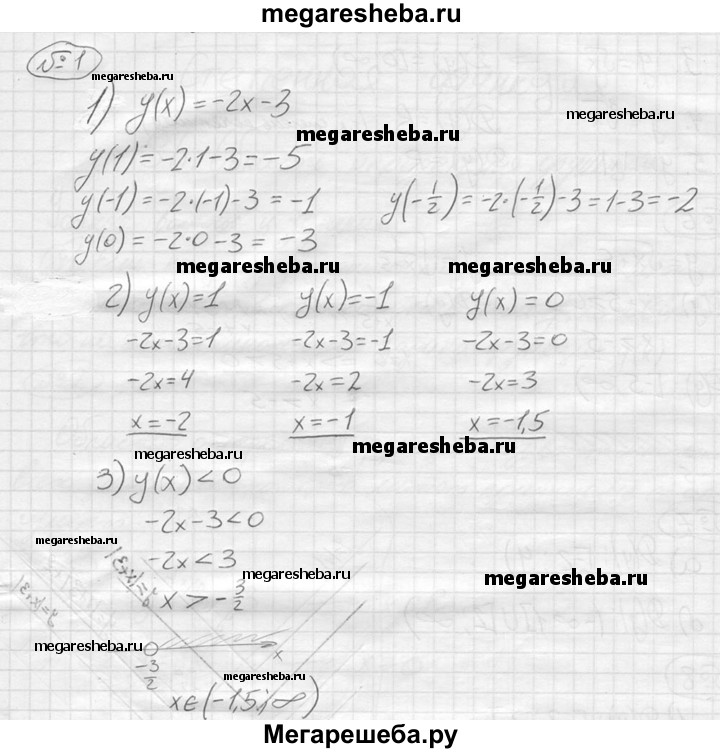 megaresheba.ru
№1
megaresheba.ru
1) y(x)=-2x-3
megaresheba.ru
megaresheba.ru
y(1)=-2·1-3=-5
y(-1)=-2·(-1)-3=-1 y(-1/2)=-2·(-1/2)-3=1-3=-2
y(0)=-2·0-3=-3
megaresheba.ru megaresheba.ru
2) y(x)=1 y(x)=-1 y(x)=0
-2x-3=1 -2x-3=-1 -2x-3=0
-2x=4 -2x=2 -2x=3
x=-2 x=-1 x=-1,5
megaresheba.ru megaresheba.ru
3) y(x)<0
-2x-3<0
megaresheba.ru
-2x<3
megaresheba.ru megaresheba.ru
x>-3/2
megaresheba.ru
x
-3/2
megaresheba.ru
x∈(-1,5;∞)
Мегарешеба.ру